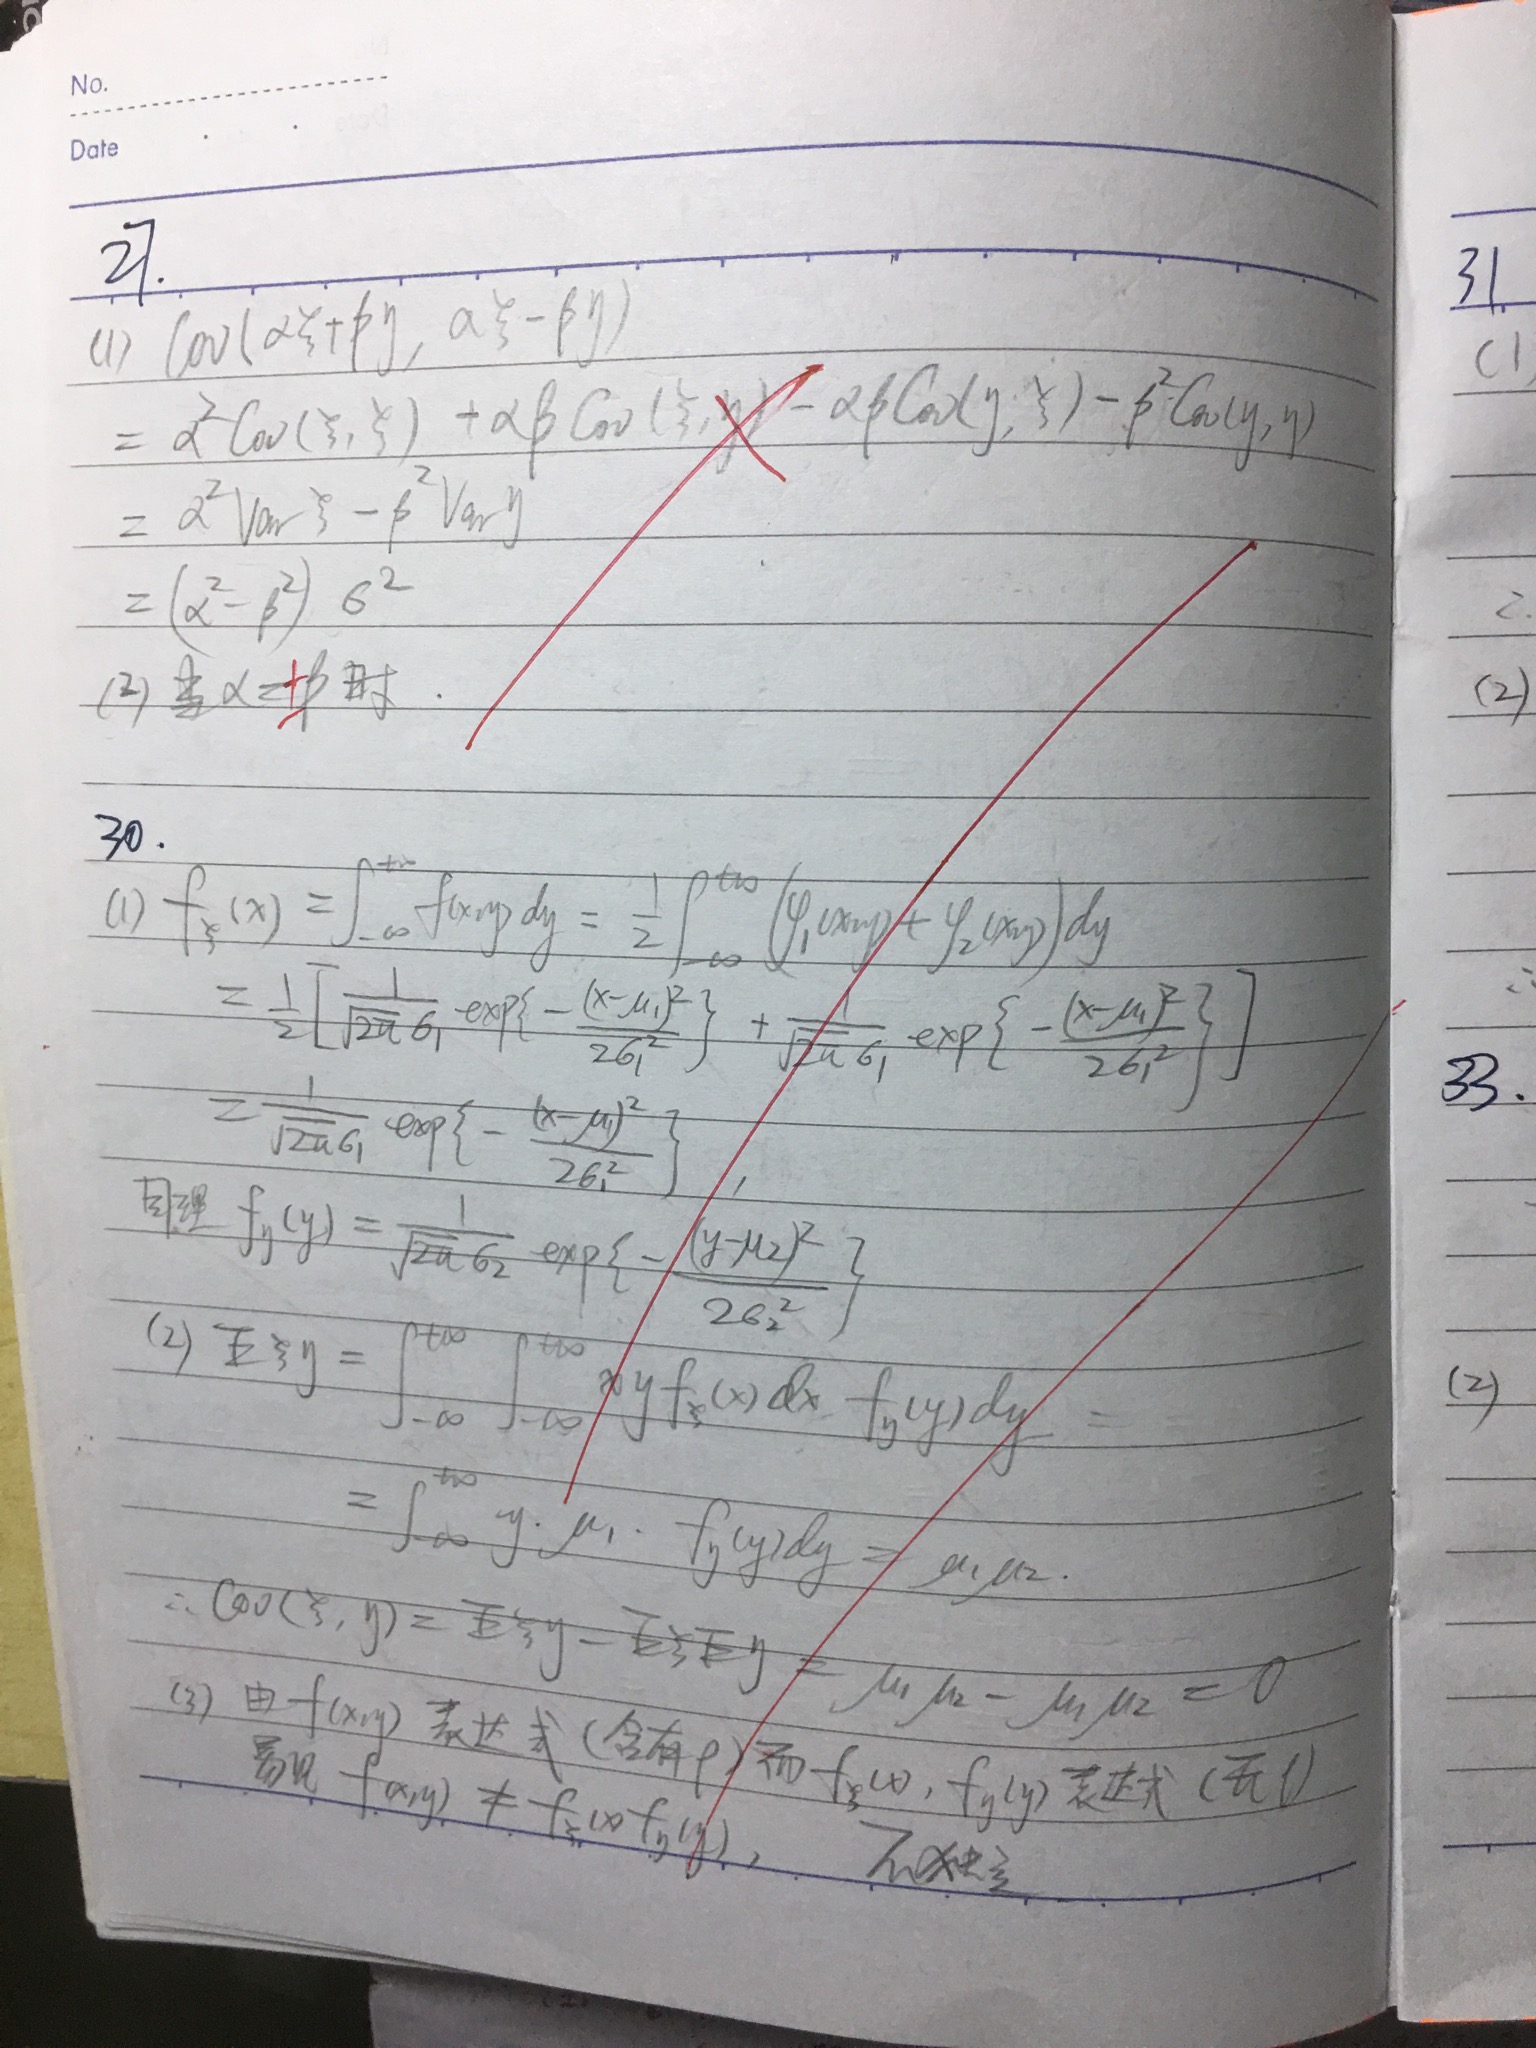 No.
Date
27.
(1) Cov(αξ+βη, αξ-βη)
= α²Cov(ξ,ξ) + αβCov(ξ,η) - αβCov(η,ξ) - β²Cov(η,η)
= α²Varξ - β²Varη
= (α²-β²) σ²
(2) 当 α=±β 时.
30.
(1) f_ξ(x) = ∫_{-∞}^{+∞} f(x,y)dy = 1/2 ∫_{-∞}^{+∞} (φ₁(x,y) + φ₂(x,y))dy
= 1/2 [ 1/(√(2π)σ₁) exp{ -(x-μ₁)²/(2σ₁²) } + 1/(√(2π)σ₁) exp{ -(x-μ₁)²/(2σ₁²) } ]
= 1/(√(2π)σ₁) exp{ -(x-μ₁)²/(2σ₁²) },
同理 f_η(y) = 1/(√(2π)σ₂) exp{ -(y-μ₂)²/(2σ₂²) }
(2) Eξη = ∫_{-∞}^{+∞} ∫_{-∞}^{+∞} xy f_ξ(x)dx f_η(y)dy =
= ∫_{-∞}^{+∞} y·μ₁· f_η(y)dy = μ₁μ₂.
∴ Cov(ξ,η) = Eξη - EξEη = μ₁μ₂ - μ₁μ₂ = 0
(3) 由 f(x,y) 表达式 (含有ρ) 而 f_ξ(x), f_η(y) 表达式 (无ρ)
易见 f(x,y) ≠ f_ξ(x) f_η(y), 不独立
31
(1)
(2)
33.
(2)